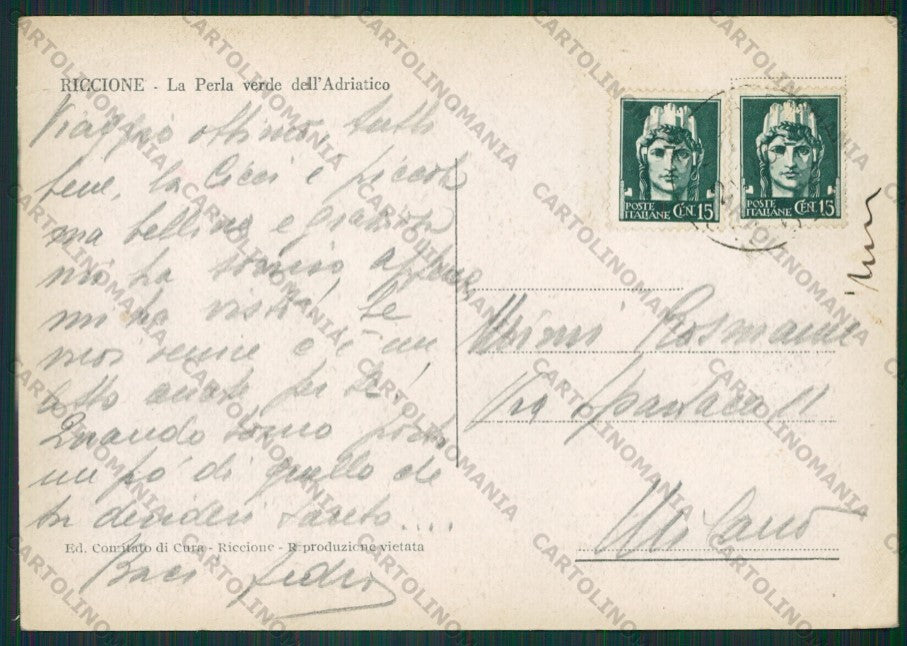 RICCIONE - La Perla verde dell'Adriatico
Viaggio ottimo, tutti
bene, la Cicci è piccola
ma bellina e graziosa
mi ha sorriso appena
mi ha visto! Se
vuoi venire c'è un
letto anche per te!
Quando torno porto
un pò di quello che
tu desideri tanto....
Baci
Ed. Comitato di Cura - Riccione - Riproduzione vietata
POSTE ITALIANE CEN. 15
POSTE ITALIANE CEN. 15
Mimi Rosmann
Via Spartaco 11
Milano
CARTOLINOMANIA